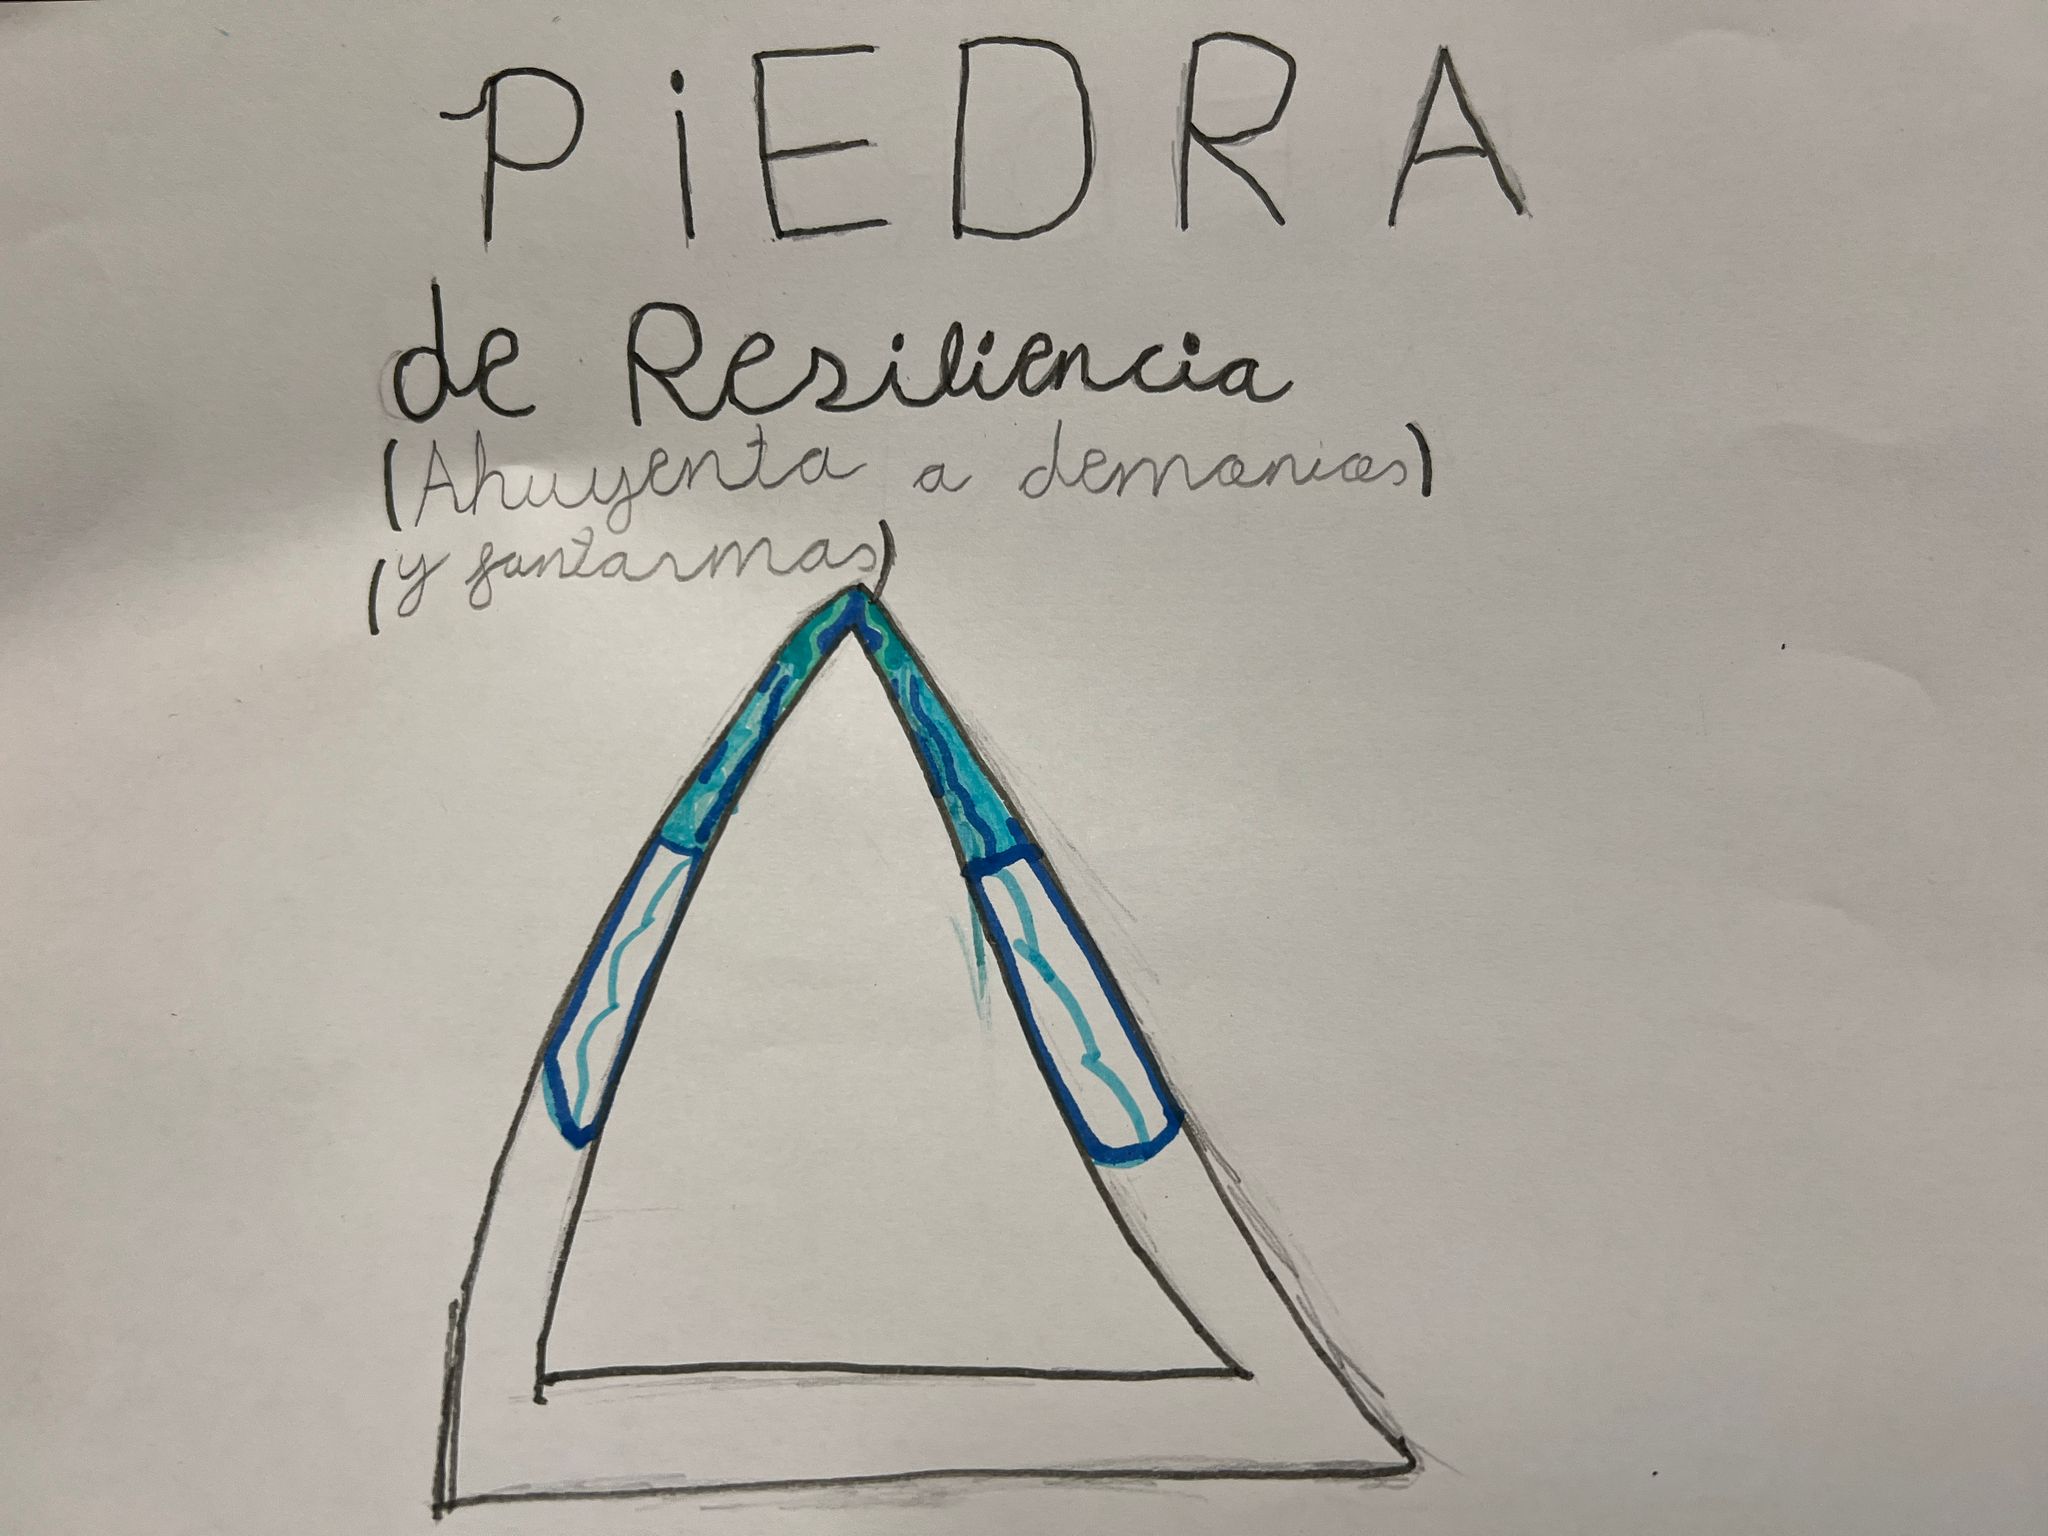 PiEDRA
de Resiliencia
(Ahuyenta a demonios)
(y fantarmas)